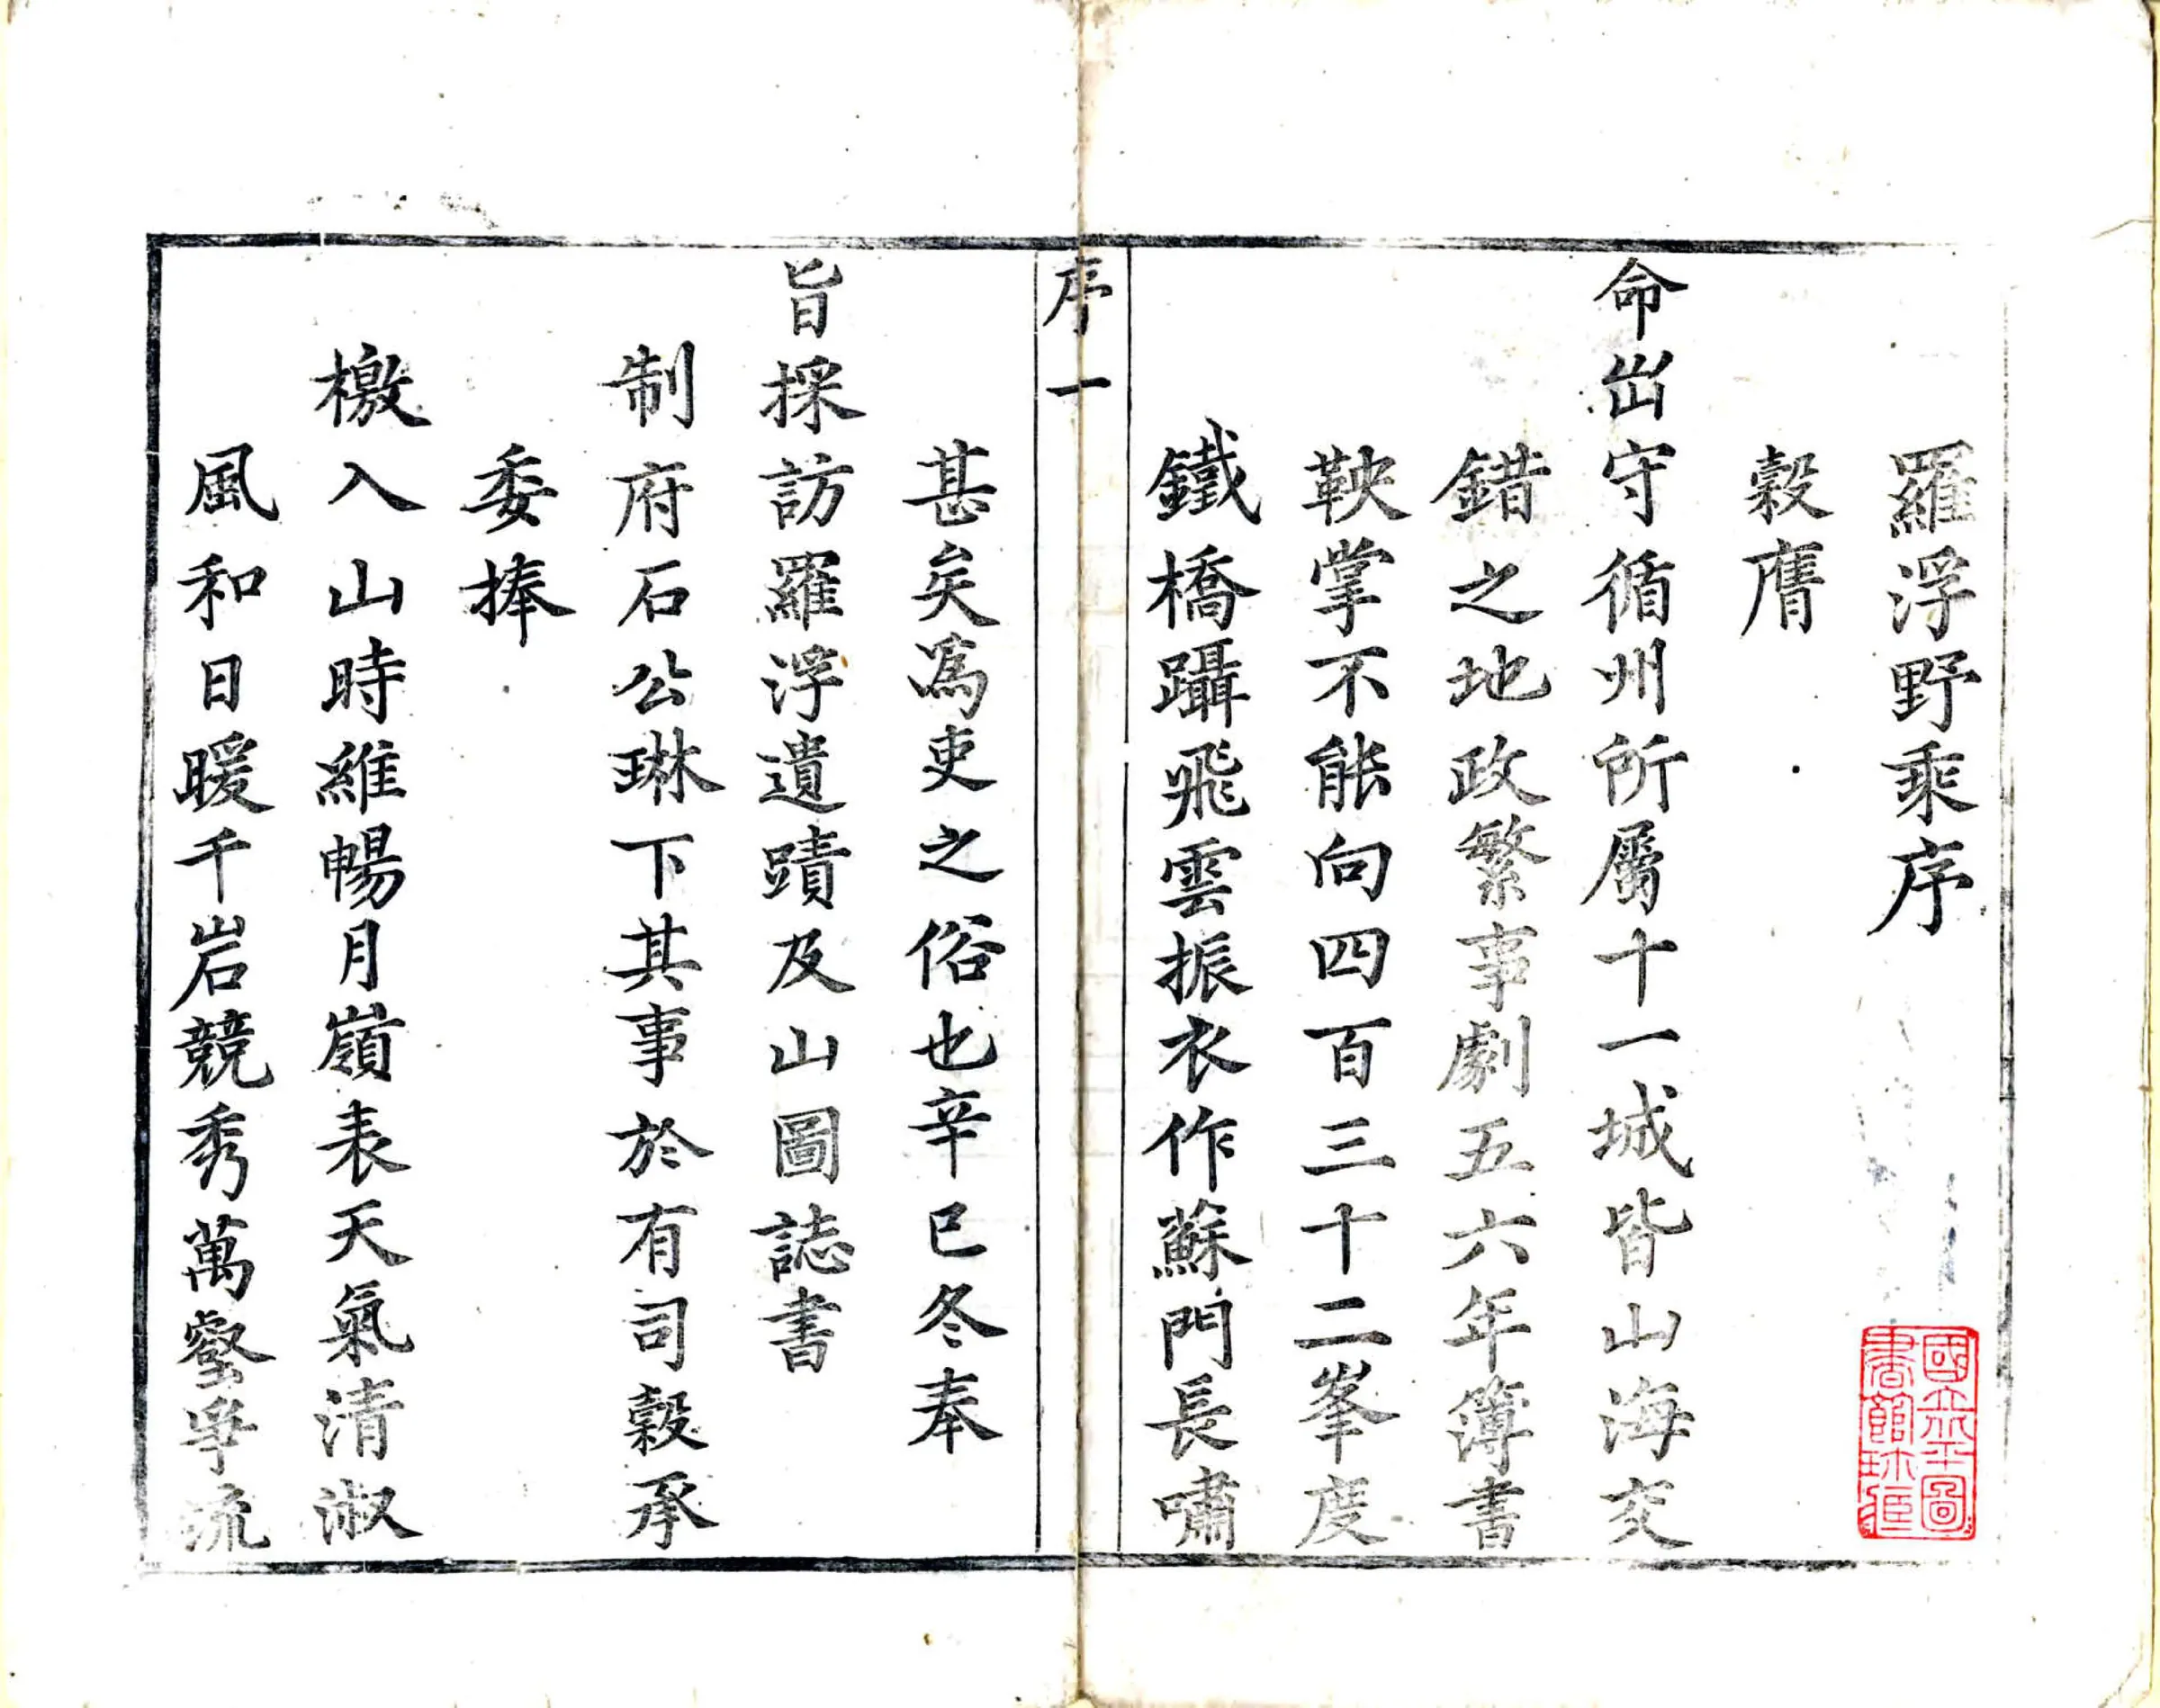 羅浮野乘序
穀膺
命出守循州所屬十一城皆山海交
錯之地政繁事劇五六年簿書
鞅掌不能向四百三十二峯度
鐵橋躡飛雲振衣作蘇門長嘯
序一
甚矣爲吏之俗也辛巳冬奉
旨採訪羅浮遺蹟及山圖誌書
制府石公琳下其事於有司穀承
委捧
檄入山時維暢月嶺表天氣清淑
風和日暖千岩競秀萬壑爭流
國立北平圖
書館珍藏